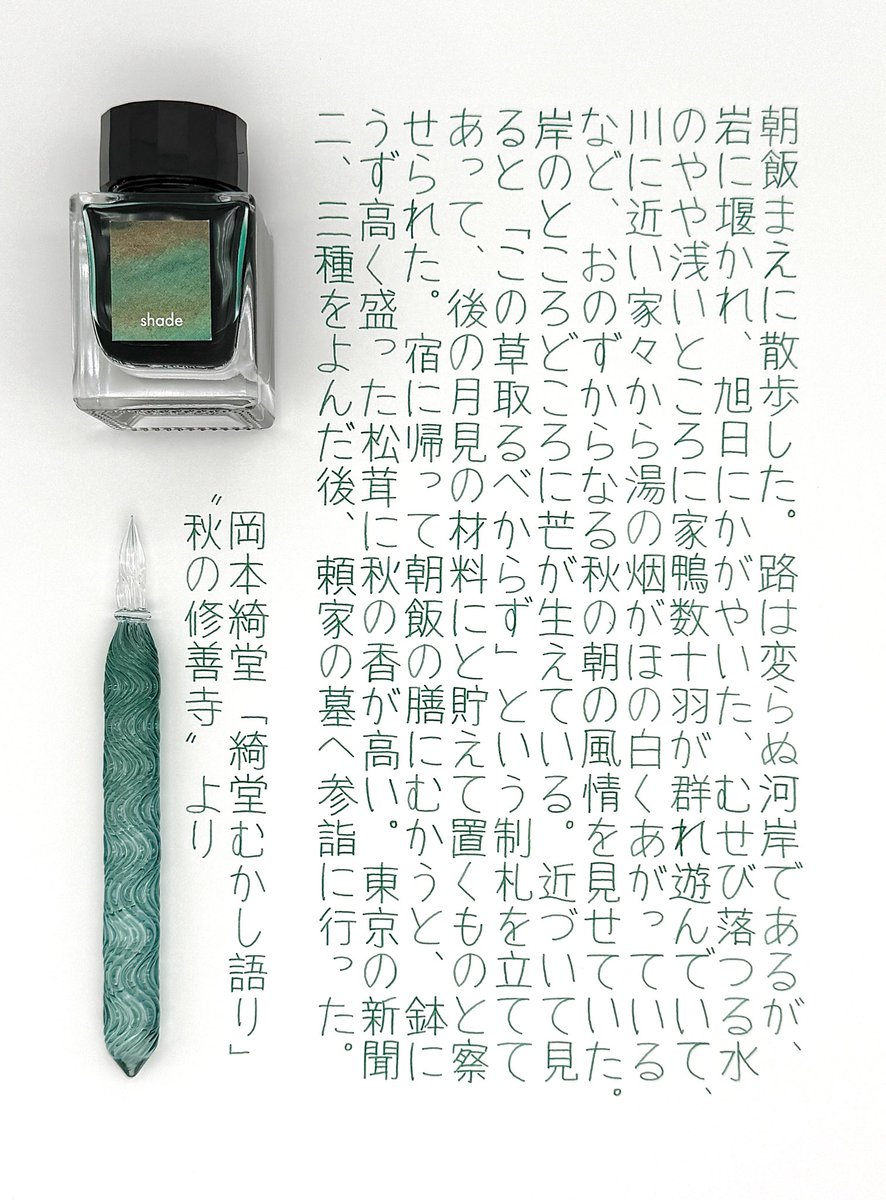 朝飯まえに散歩した。路は変らぬ河岸であるが、
岩に堰かれ、旭日にかがやいた、むせび落つる水
のやや浅いところに家鴨数十羽が群れ遊んでいて、
川に近い家々から湯の烟がほの白くあがっている
など、おのずからなる秋の朝の風情を見せていた。
岸のところどころに芒が生えている。近づいて見
ると「この草取るべからず」という制札を立てて
あって、後の月見の材料にと貯えて置くものと察
せられた。宿に帰って朝飯の膳にむかうと、鉢に
うず高く盛った松茸に秋の香が高い。東京の新聞
二、三種をよんだ後、頼家の墓へ参詣に行った。
岡本綺堂「綺堂むかし語り」
〝秋の修善寺〟より
shade